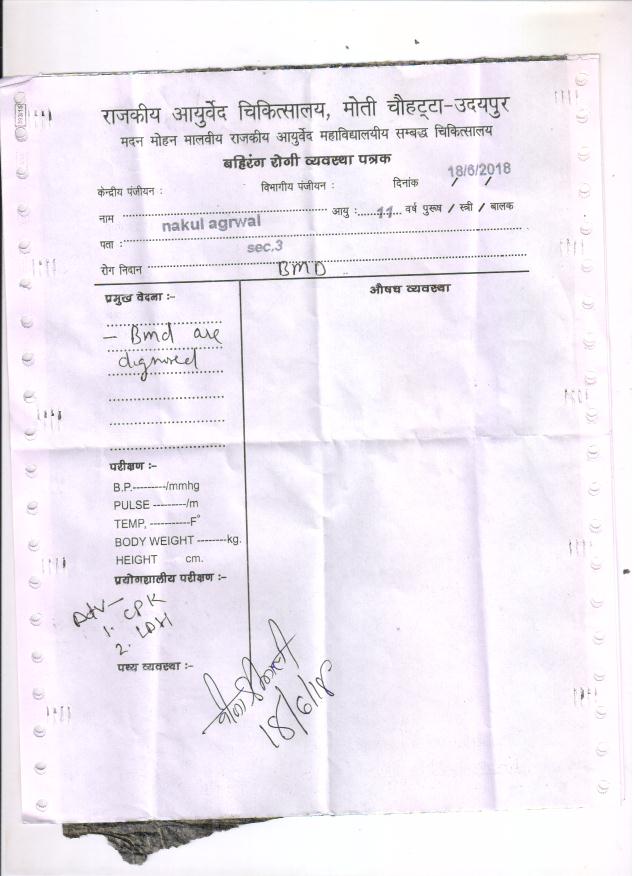 राजकीय आयुर्वेद चिकित्सालय, मोती चौहट्टा-उदयपुर
मदन मोहन मालवीय राजकीय आयुर्वेद महाविद्यालयीय सम्बद्ध चिकित्सालय
बहिरंग रोगी व्यवस्था पत्रक
केन्द्रीय पंजीयन : विभागीय पंजीयन : दिनांक 18/6/2018
नाम nakul agrwal आयु : 11 वर्ष पुरूष / स्त्री / बालक
पता : sec.3
रोग निदान BMD
प्रमुख वेदना :- औषध व्यवस्था
- Bmd are
dignosed
परीक्षण :-
B.P.---------/mmhg
PULSE ---------/m
TEMP, -----------F°
BODY WEIGHT --------kg.
HEIGHT cm.
प्रयोगशालीय परीक्षण :-
Adv-
1. CPK
2. LDH
पथ्य व्यवस्था :-
18/6/18